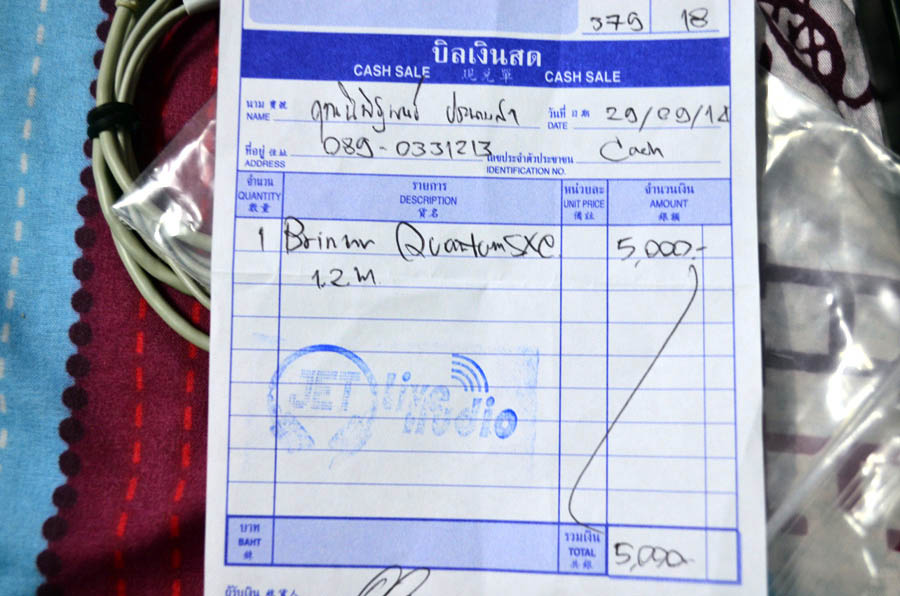 379 18
บิลเงินสด
CASH SALE 現兌單 CASH SALE
นาม 寶號 วันที่ 日期
NAME DATE 29/09/18
ที่อยู่ 住址 089-0331213 เลขประจำตัวประชาชน Cash
ADDRESS IDENTIFICATION NO.
จำนวน รายการ หน่วยละ จำนวนเงิน
QUANTITY DESCRIPTION UNIT PRICE AMOUNT
數量 貨名 備註 銀額
1 5,000.-
1.2 m.
JET Live
บาท รวมเงิน
BAHT TOTAL 5,000.-
銖 共銀
ผู้รับเงิน